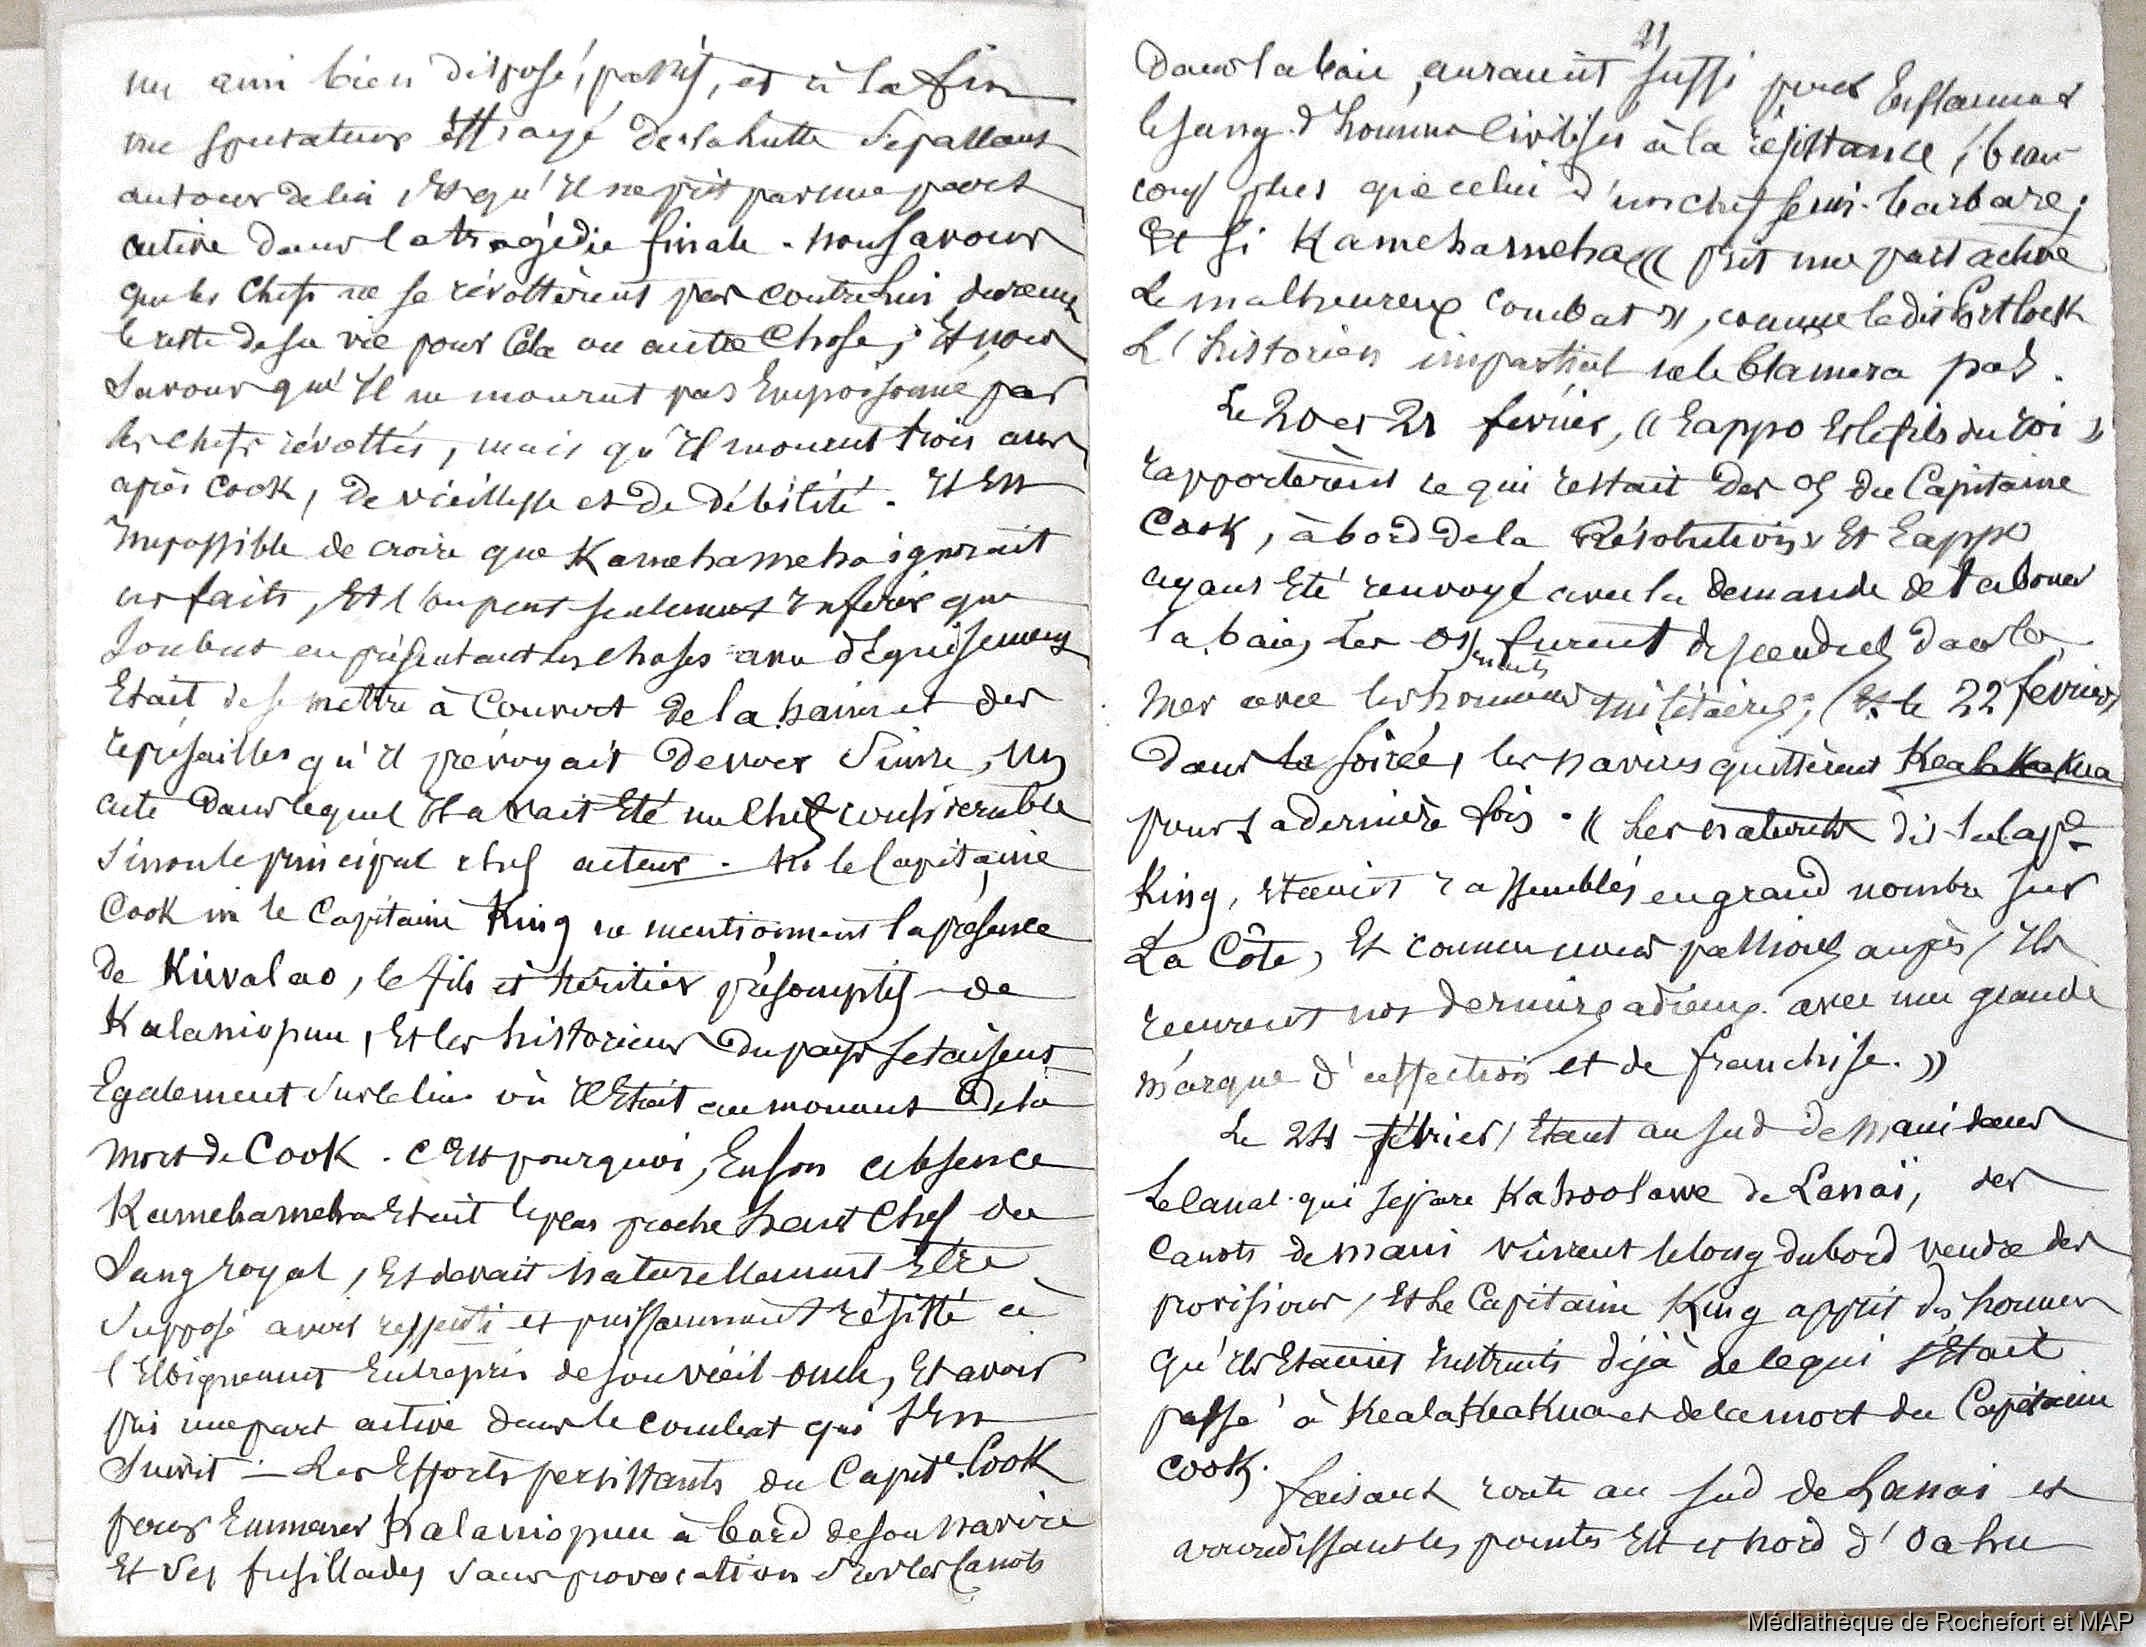 un ami bien disposé, passif, et à la fin
une spectateur effrayé de la hutte se passant
autour de lui, et qu'il ne prit pas une part
active dans la tragédie finale. nous savons
que les chefs ne se révoltèrent pas contre lui, durant
le reste de sa vie pour cela ou autre chose; et nous
savons qu'il ne mourut pas empoisonné par
les chefs révoltés, mais qu'il mourut trois ans
après Cook, de vieillesse et de débilité. Il est
impossible de croire que Kamehameha ignorait
ces faits, et l'on peut seulement inférer que
son but en présentant les choses avec déguisement
était de se mettre à couvert de la haine et des
représailles qu'il prévoyait devoir suivre, un
acte dans lequel il avait été un chef considérable
sinon le principal chef acteur. Ni le Capitaine
Cook ni le Capitaine King ne mentionnent la présence
de Kiwalao, le fils et héritier présomptif de
Kalaniopuu, et les historiens du pays se taisent
également sur le lieu où il était au moment de la
mort de Cook. C'est pourquoi, en son absence
Kamehameha était le plus proche haut chef du
sang royal, et devait naturellement être
supposé avoir ressenti et puissamment résisté à
l'éloignement entrepris de son vieil oncle, et avoir
pris une part active dans le combat qui s'en
suivit — Les efforts persistants du Capit.e Cook
pour emmener Kalaniopuu à bord de son navire
et ses fusillades sans provocation sur les canots
21
dans la baie, auraient suffi pour enflammer
le sang d'hommes civilisés à la résistance, beau
coup plus que celui d'un chef semi-barbare;
et si Kamehameha « prit une part active
le malheureux combat », comme le dit Portlock
l'historien impartial ne le blamera pas.
Le 20 et 21 février, « Eappo et le fils du roi »
rapportèrent ce qui restait des os du Capitaine
Cook, à bord de la Résolution; et Eappo
ayant été renvoyé avec la demande de tabouer
la baie, les os furent descendus dans la
mer avec les honneurs militaires; et le 22 février
dans la soirée, les navires quittèrent Kealakekua
pour la dernière fois. « Les naturels dit le Cap.e
King, étaient rassemblés en grand nombre sur
la Côte, et comme nous passions auprès, ils
reçurent nos derniers adieux avec une grande
marque d'affection et de franchise. »
Le 24 février, étant au sud de Maui dans
le canal qui sépare Kahoolawe de Lanaï, des
canots de Maui vinrent le long du bord vendre des
provisions, et le Capitaine King apprit des hommes
qu'ils étaient instruits déjà de ce qui s'était
passé à Kealakeakua et de la mort du Capitaine
Cook.
Faisant route au sud de Lanai et
arrondissant les pointes Est et nord d'Oahu
Médiathèque de Rochefort et MAP